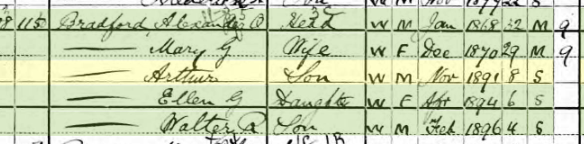 115 Bradford, Alexander O Head W M Jan 1868 32 M 9
— Mary G Wife W F Dec 1870 29 M 9
— Arthur Son W M Nov 1891 8 S
— Ellen G Daughter W F Apr 1894 6 S
— Walter R Son W M Feb 1896 4 S